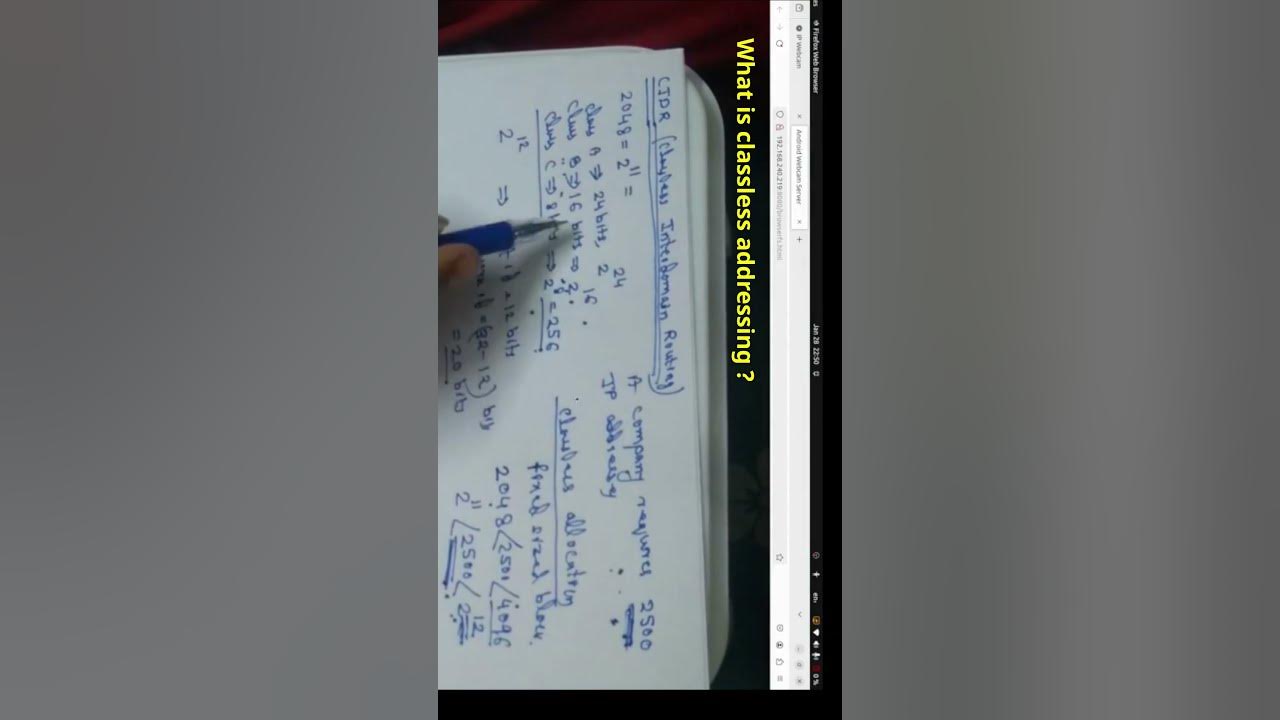 Firefox Web Browser
Jan 28 22:50
en₁
0 %
IP Webcam
Android Webcam Server
192.168.240.219:8080/browserfs.html
What is classless addressing ?
CIDR (Classless Interdomain Routing)
A company requires 2500
IP address
2048 = 2^11 =
Class A ⇒ 24 bits, 2^24
Class B ⇒ 16 bits ⇒ 2^16
Class C ⇒ 8 bits ⇒ 2^8 = 256
2^12 ⇒
= 12 bits
= (32-12) bits
= 20 bits
Classless allocation
fixed sized block.
2048 < 2500 < 4096
2^11 < 2500 < 2^12